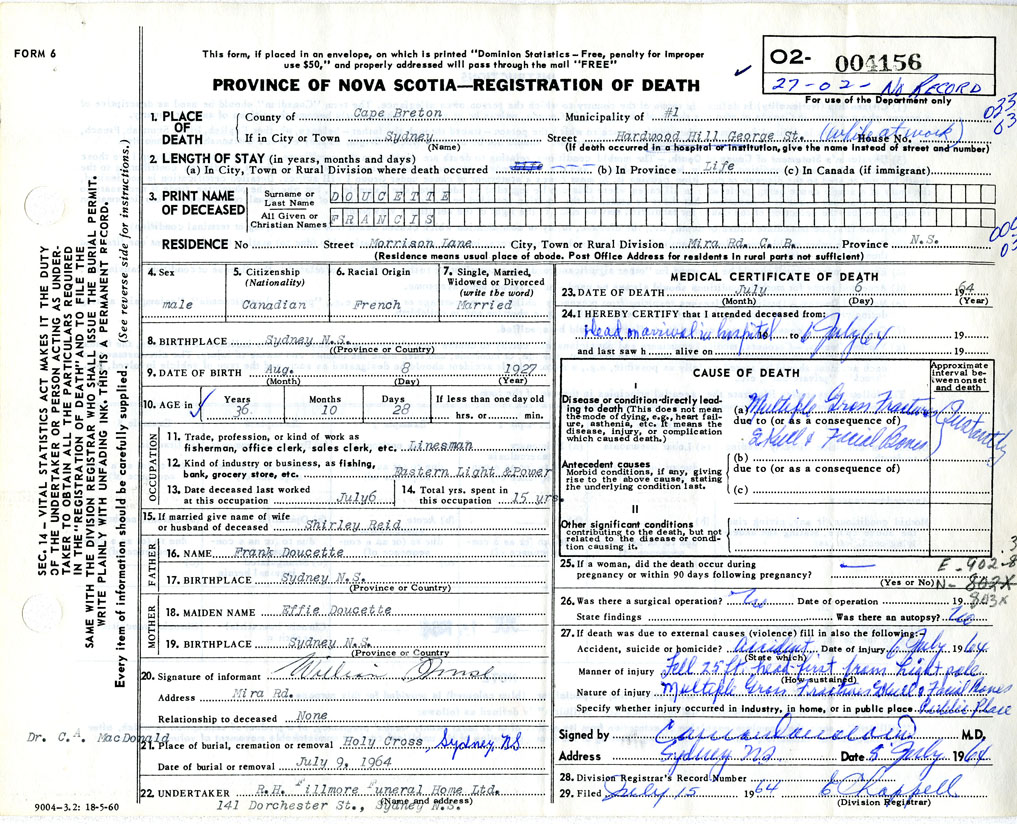 FORM 6
This form, if placed in an envelope, on which is printed "Dominion Statistics – Free, penalty for improper
use $50," and properly addressed will pass through the mail "FREE"
PROVINCE OF NOVA SCOTIA—REGISTRATION OF DEATH
O2- 004156
27-02- No RECORD
For use of the Department only
033
03
1. PLACE OF DEATH
County of Cape Breton Municipality of #1
If in City or Town Sydney Street Hardwood Hill George St. (while at work) House No.
(Name) (If death occurred in a hospital or institution, give the name instead of street and number)
2. LENGTH OF STAY (in years, months and days)
(a) In City, Town or Rural Division where death occurred (b) In Province Life (c) In Canada (if immigrant)
3. PRINT NAME OF DECEASED
Surname or Last Name DOUCETTE
All Given or Christian Names FRANCIS
000
03
RESIDENCE No Street Morrison Lane City, Town or Rural Division Mira Rd. C. B. Province N.S.
(Residence means usual place of abode. Post Office Address for residents in rural parts not sufficient)
4. Sex
male
5. Citizenship
(Nationality)
Canadian
6. Racial Origin
French
7. Single, Married,
Widowed or Divorced
(write the word)
Married
8. BIRTHPLACE Sydney N.S.
(Province or Country)
9. DATE OF BIRTH Aug. 8 1927
(Month) (Day) (Year)
10. AGE in Years Months Days If less than one day old
36 10 28 hrs. or min.
OCCUPATION
11. Trade, profession, or kind of work as
fisherman, office clerk, sales clerk, etc. Linesman
12. Kind of industry or business, as fishing,
bank, grocery store, etc. Eastern Light &Power
13. Date deceased last worked
at this occupation July6
14. Total yrs. spent in
this occupation 15 yrs.
15. If married give name of wife
or husband of deceased Shirley Reid
FATHER
16. NAME Frank Doucette
17. BIRTHPLACE Sydney N.S.
(Province or Country)
MOTHER
18. MAIDEN NAME Effie Doucette
19. BIRTHPLACE Sydney N.S.
(Province or Country
20. Signature of informant William
Address Mira Rd.
Relationship to deceased None
Dr. C.A. MacDonald
21. Place of burial, cremation or removal Holy Cross, Sydney, N.S
Date of burial or removal July 9, 1964
22. UNDERTAKER R.H. Fillmore Funeral Home Ltd.
(Name and address)
141 Dorchester St., Sydney N.S.
9004-3.2: 18-5-60
MEDICAL CERTIFICATE OF DEATH
23. DATE OF DEATH July 6 1964
(Month) (Day) (Year)
24. I HEREBY CERTIFY that I attended deceased from:
Dead on arrival in hospital to 6 July 64 19
and last saw h alive on 19
CAUSE OF DEATH
Approximate interval between onset and death
I
Disease or condition directly leading to death (This does not mean the mode of dying, e.g., heart failure, asthenia, etc. It means the disease, injury, or complication which caused death.)
(a) Multiple Gross Fractures
due to (or as a consequence of)
Skull & Facial Bones
Instantly
Antecedent causes
Morbid conditions, if any, giving
rise to the above cause, stating
the underlying condition last.
(b)
due to (or as a consequence of)
(c)
II
Other significant conditions
contributing to the death, but not
related to the disease or condition causing it.
25. If a woman, did the death occur during
pregnancy or within 90 days following pregnancy?
(Yes or No)
.3
E-902-8
N- 803X
803X
26. Was there a surgical operation? No Date of operation 19
State findings Was there an autopsy? No
27. If death was due to external causes (violence) fill in also the following:-
Accident, suicide or homicide? Accident Date of injury 6 July 1964
(State which)
Manner of injury Fell 25 ft. head-first from light pole
(How sustained)
Nature of injury Multiple Gross Fractures Skull & Facial Bones
Specify whether injury occurred in industry, in home, or in public place Public Place
Signed by M.D.
Address Sydney NS Date 8 July 1964
28. Division Registrar's Record Number
29. Filed July 15 1964 E Chappell
(Division Registrar)
SEC. 14 – VITAL STATISTICS ACT MAKES IT THE DUTY
OF THE UNDERTAKER OR PERSON ACTING AS UNDERTAKER TO OBTAIN ALL THE PARTICULARS REQUIRED
IN THE "REGISTRATION OF DEATH" AND TO FILE THE
SAME WITH THE DIVISION REGISTRAR WHO SHALL ISSUE THE BURIAL PERMIT.
WRITE PLAINLY WITH UNFADING INK. THIS IS A PERMANENT RECORD.
Every item of information should be carefully supplied. (See reverse side for instructions.)